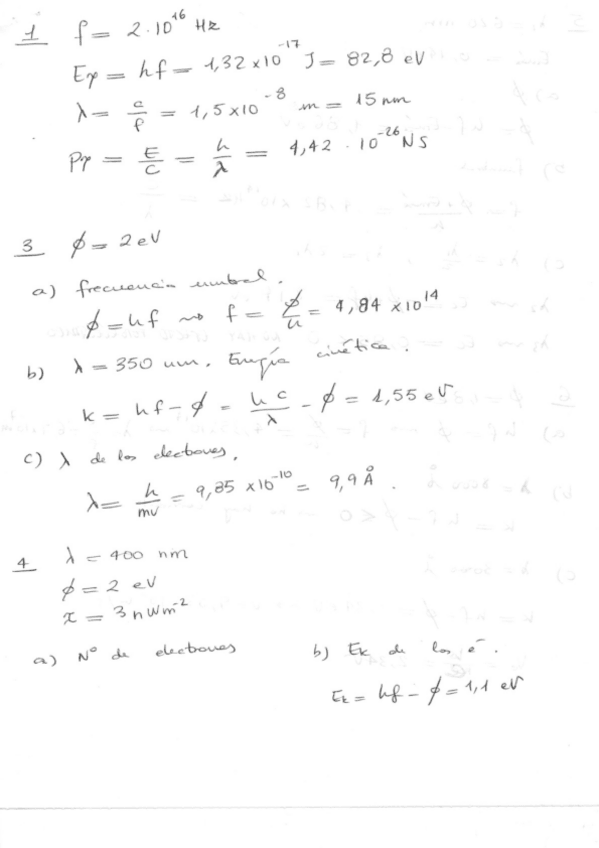 1 f = 2·10^16 Hz
Eγ = hf = 1,32×10^-17 J = 82,8 eV
λ = c/f = 1,5×10^-8 m = 15 nm
Pγ = E/c = h/λ = 4,42·10^-26 NS
3 ϕ = 2 eV
a) frecuencia umbral.
ϕ = hf ⇝ f = ϕ/h = 4,84 ×10^14
b) λ = 350 nm. Energía cinética.
k = hf - ϕ = hc/λ - ϕ = 1,55 eV
c) λ de los electrones.
λ = h/mv = 9,85 ×10^-10 = 9,9 Å.
4 λ = 400 nm
ϕ = 2 eV
I = 3 nWm^-2
a) Nº de electrones
b) Ek de los e⁻.
Ek = hf - ϕ = 1,1 eV